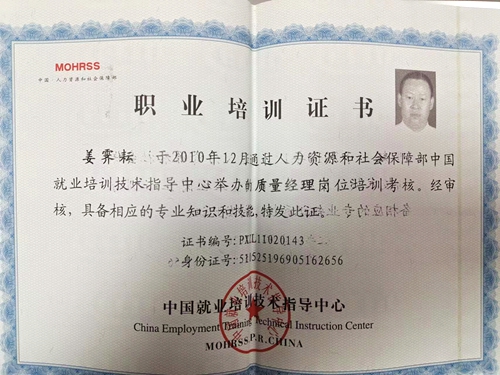 MOHRSS
中国·人力资源和社会保障部
职业培训证书
姜霁耘 于2010年12月通过人力资源和社会保障部中国
就业培训技术指导中心举办的质量经理岗位培训考核。经审
核，具备相应的专业知识和技能，特发此证。
证书编号：PXJL11020143
身份证号：
中国就业培训技术指导中心
China Employment Training Technical Instruction Center
MOHRSS P.R.CHINA